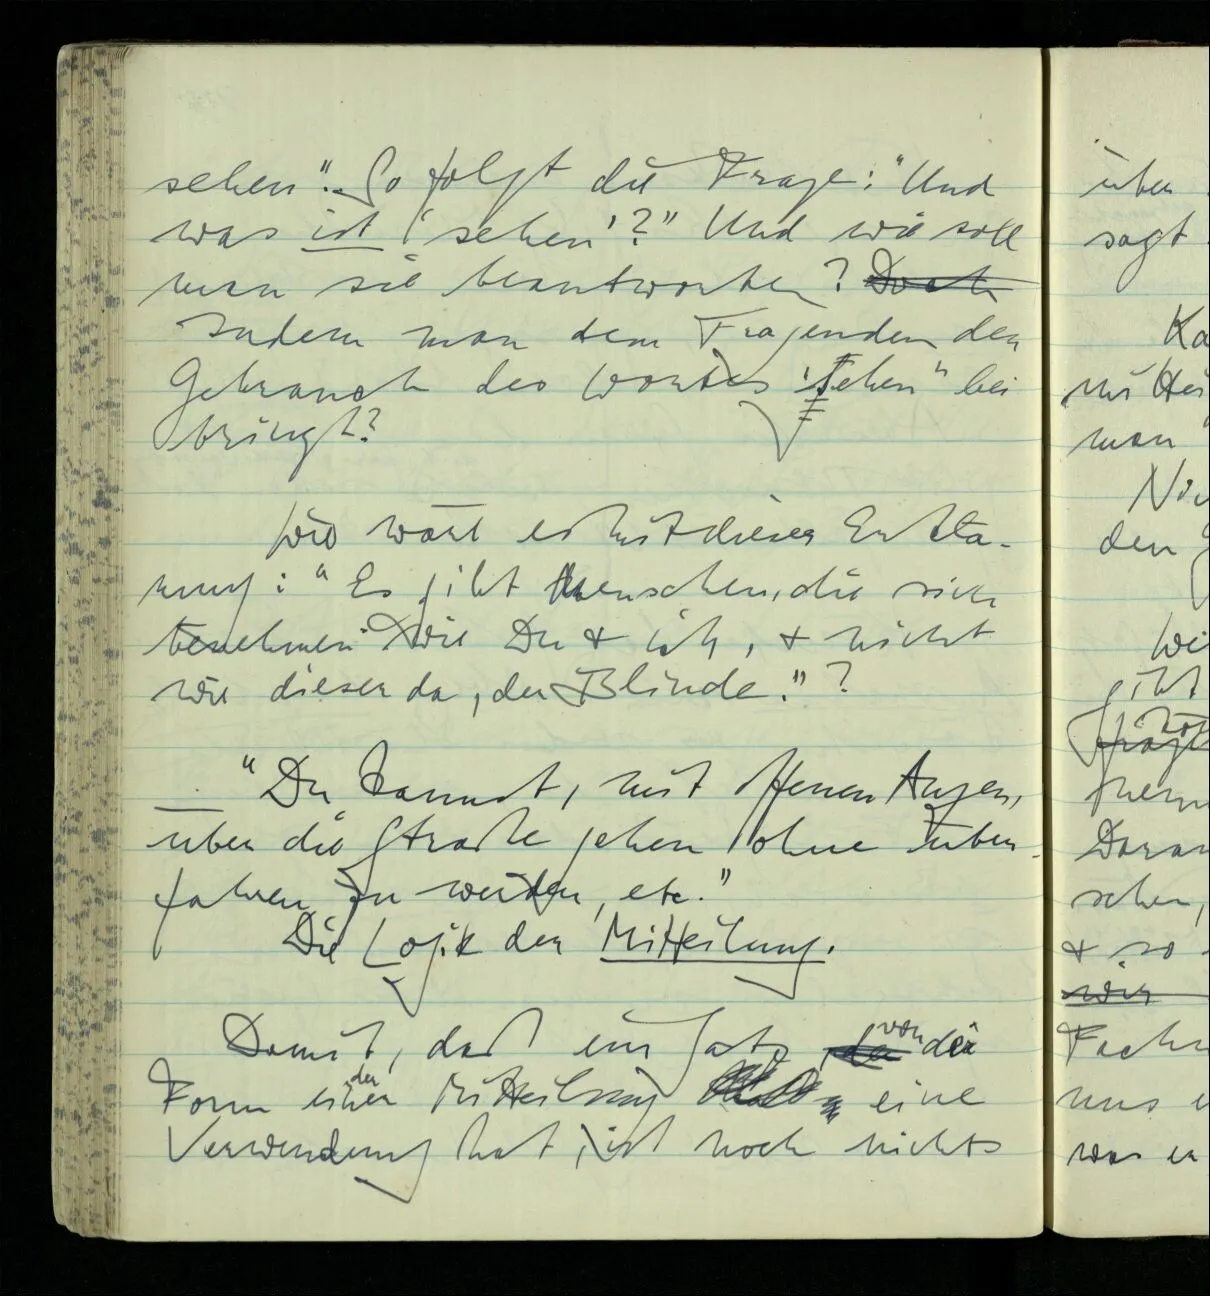 sehen". So folgt die Frage: "Und
was ist 'sehen'?" Und wie soll
man sie beantworten? Doch
Indem man dem Fragenden den
Gebrauch des Wortes "sehen" bei
bringt?
Wie wäre es mit dieser Erklä-
rung: "Es gibt Menschen, die sich
benehmen wie Du & ich, & nicht
wie dieser da, der Blinde."?
"Du kannst, mit offenen Augen,
über die Straße gehen ohne über-
fahren zu werden, etc."
Die Logik der Mitteilung.
Damit, daß ein Satz, von der
Form einer der Mitteilung eine
Verwendung hat, ist noch nichts
über
sagt
Ka
man
den
Wei
gibt
Daran
sehen,
& so
wir
Fach
uns
was